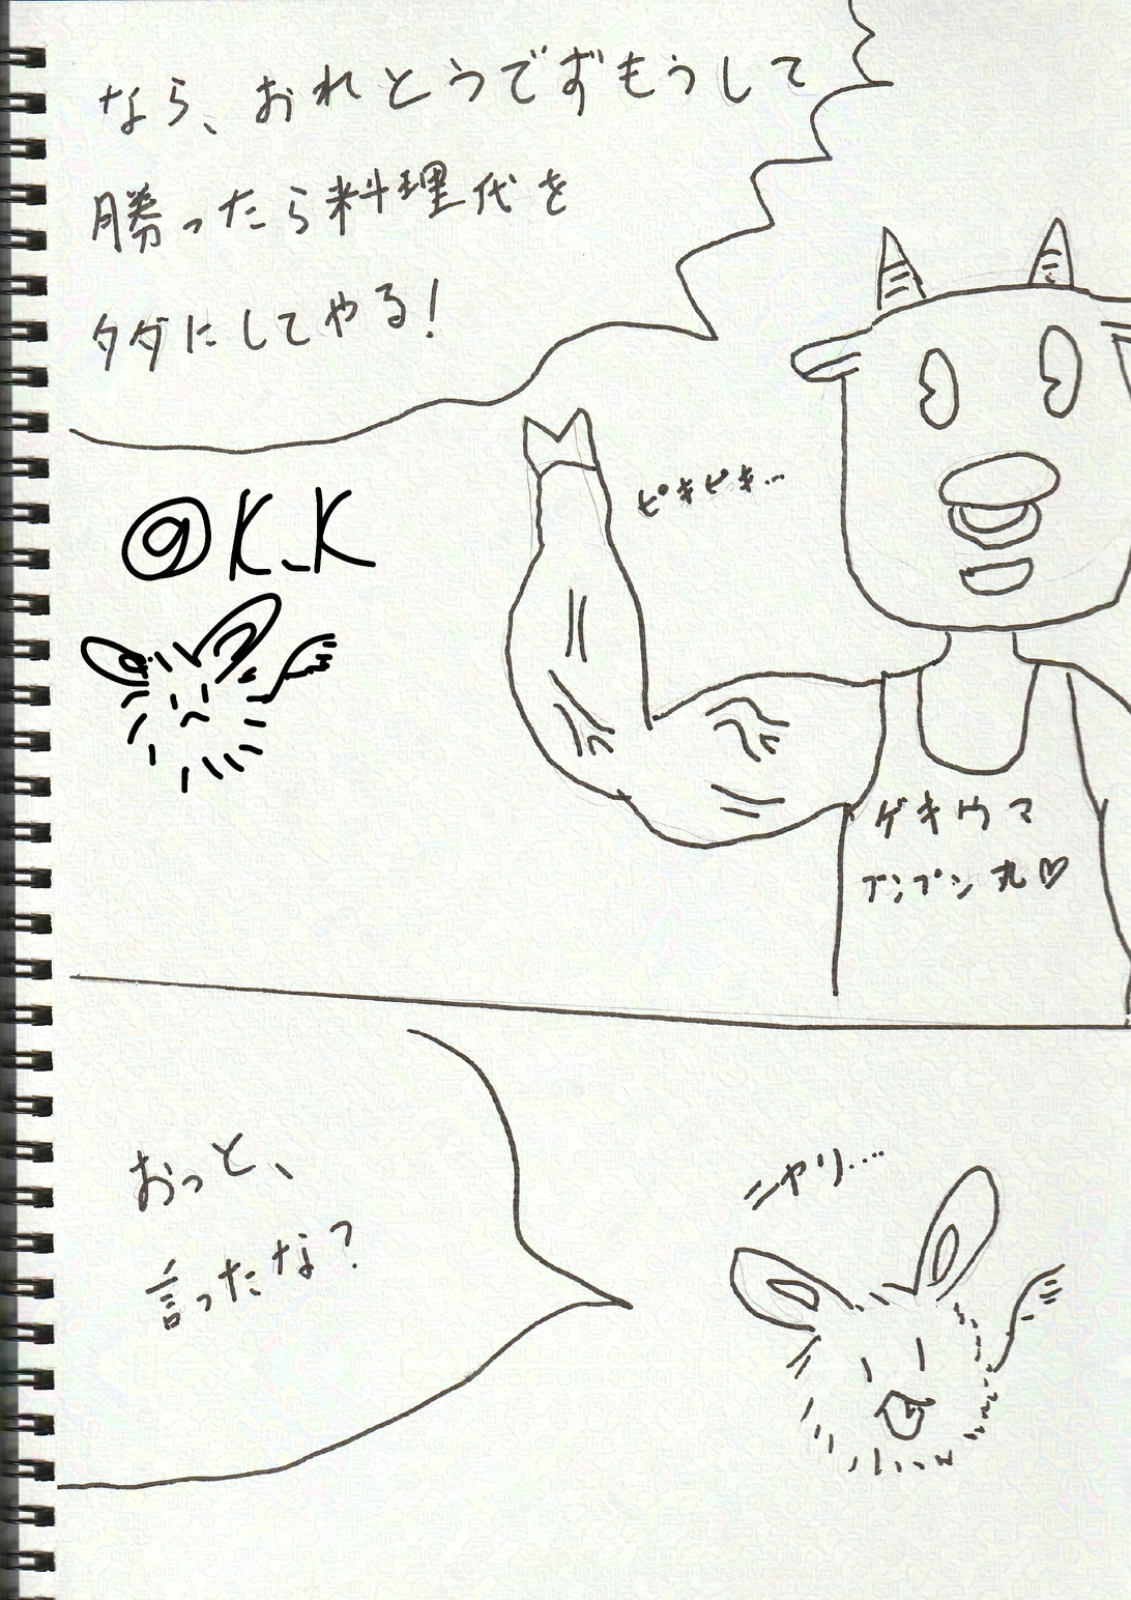 なら、おれとうでずもうして
勝ったら料理代を
タダにしてやる!
@K_K
ピキピキ…
ゲキウマ
プンプン丸♡
ニヤリ….
おっと、
言ったな?